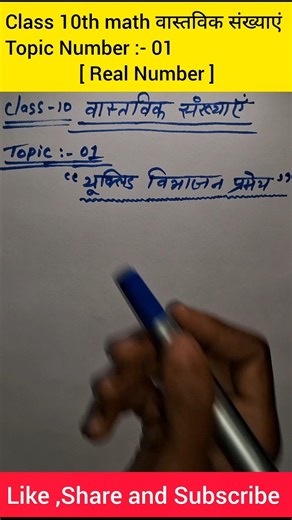 Class 10th math वास्तविक संख्याएं
Topic Number :- 01
[ Real Number ]
Class-10 वास्तविक संख्याएं
Topic :- 01
“ यूक्लिड विभाजन प्रमेय ”
Like ,Share and Subscribe